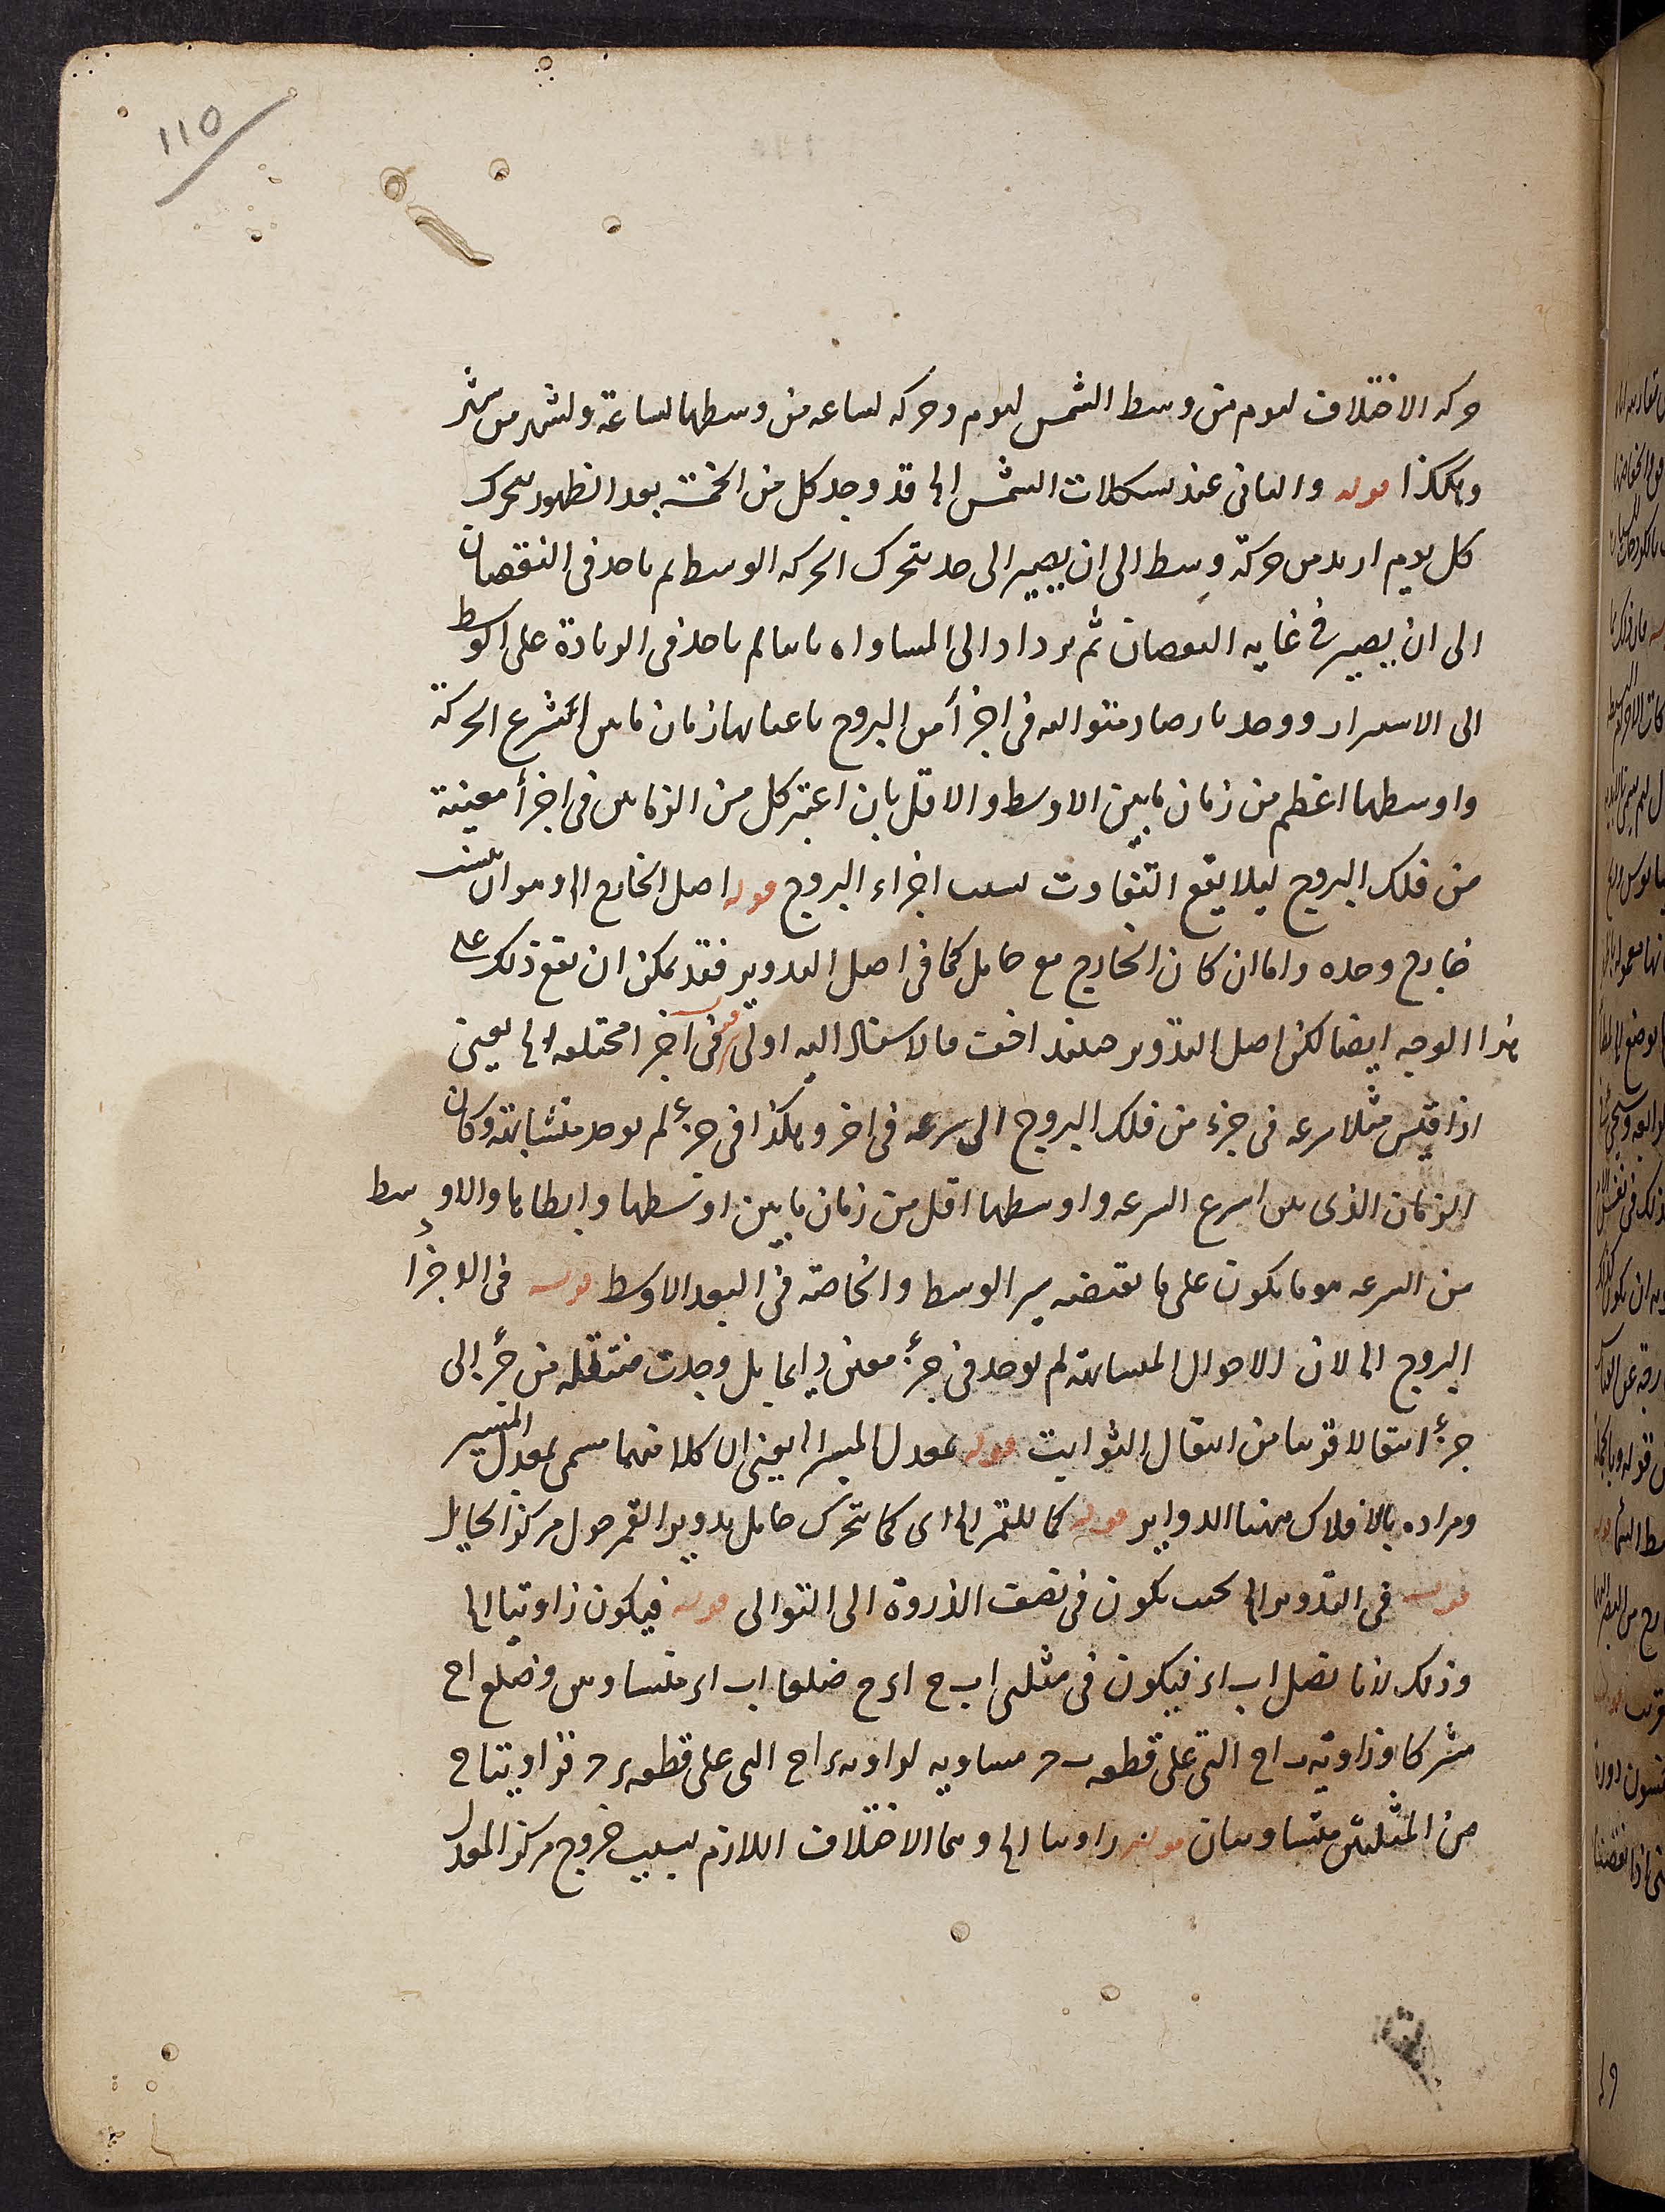 110
حركه الاختلاف ليوم من وسط الشمس ليوم وحركه لساعه من وسطها لساعة ولشهر من شهر
وهكذا قوله والثانى عند تشكلات الشمس الخ قد وجد كل من الخمسة بعد الظهور يتحرك
كل يوم ازيد من حركة وسط الى ان يصير الى حد يتحرك الحركه الوسط ثم ياخذ فى النقصان
الى ان يصير فى غايه النقصان ثم يزداد الى المساواه ثانيا ثم ياخذ فى الزيادة على الوسط
الى الاستمرار ووجد بارصاد متواليه فى اجزأ من البروج باعيانها زمان ما بين اسرع الحركة
واوسطها اعظم من زمان ما بين الاوسط والاقل بان اعتبر كل من الزمانين فى اجزأ معينة
من فلك البروج ليلا يقع التفاوت بسبب اجزاء البروج قوله اصل الخارج الخ وهو ان
خارج وحده واما ان كان الخارج مع حامل كما فى اصل التدوير فقد يمكن ان يقع ذلك على
هذا الوجه ايضا لكن اصل التدوير حينئذ اخف فالاستناد اليه اولى قوله فى اجزا مختلفه الخ يعنى
اذا قيس مثلا سرعه فى جزء من فلك البروج الى سرعه فى اخر وهكذا فى جزء لم يوجد متشابهة وكان
الزمان الذى بين اسرع السرعه واوسطها اقل من زمان ما بين اوسطها وابطاها والاوسط
من السرعه هو ما يكون على ما يقتضيه سير الوسط والخاصة فى البعد الاوسط قوله فى الاجزا
البروج الخ لان الاحوال المتشابهة لم يوجد فى جزء معين دايما بل وجدت منتقله من جزء الى
جزء انتقالا قريبا من انتقال الثوابت قوله معدل المسير الخ يعنى ان كلا منهما يسمى بمعدل المسير
ومراده بالافلاك ههنا الدواير قوله كما للقمر الخ اى كما يتحرك حامل تدوير القمر حول مركز الحامل
قوله فى التدوير الخ بحيث يكون فى نصف الذروة الى التوالى قوله فيكون زاويتا الخ
وذلك لانا نصل اب از فيكون فى مثلثى اب ح از ح ضلعا اب از متساويين وضلع اح
مشتركا وزاوية ب اح التى على قطعه ب د مساويه لزاويه ز اح التى على قطعه ز د فزاويتا ح
من المثلثين متساويتان قوله زاويتا الخ وهما الاختلاف اللازم بسبب خروج مركز المعدل